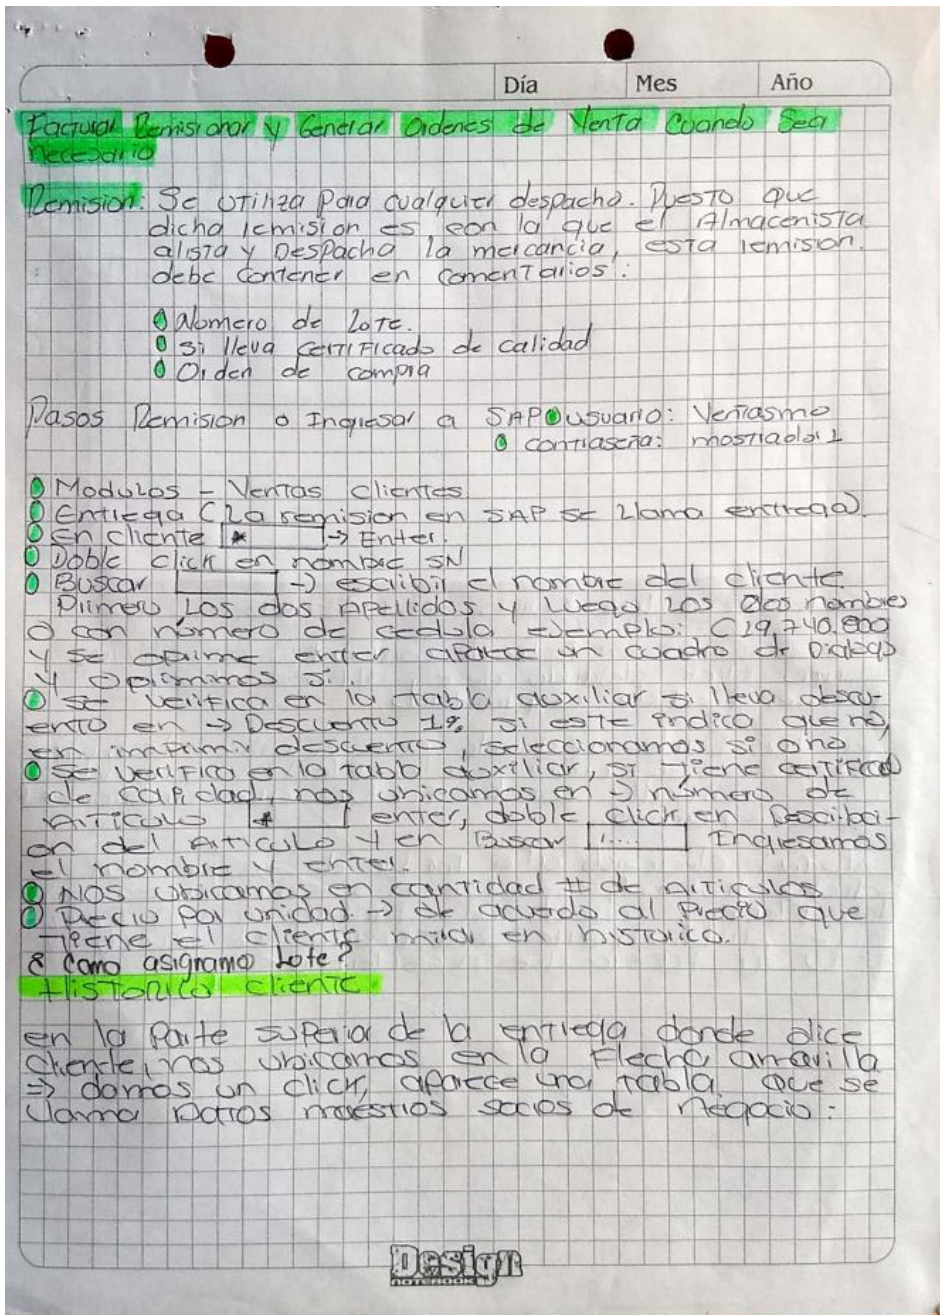 Día Mes Año
Facturar Remisionar y Generar Ordenes de Venta Cuando Sea
necesario
Remision: Se utiliza para cualquier despacho. Puesto que
dicha remision es con la que el Almacenista
alista y Despacha la mercancia, esta remision.
debe contener en comentarios:
Numero de Lote.
Si lleva certificado de calidad
Orden de compra
Pasos Remision o Ingresar a SAP Usuario: Ventasmo
contraseña: mostrador 1
Modulos - Ventas Clientes
Entrega (La remision en SAP se llama entrega).
En cliente * → Enter.
Doble click en nombre SN
Buscar → escribir el nombre del cliente
Primero Los dos Apellidos y Luego Los dos nombres
O con número de cedula ejemplo: C19.740.800
y se oprime enter aparece un cuadro de Dialogo
y oprimimos si.
se verifica en la tabla auxiliar si lleva descu-
ento en → Descuento 1% si este indica que no,
en imprimir descuento, seleccionamos si o no
Se verifica en la tabla auxiliar, si tiene certificad
de calidad, nos ubicamos en → número de
Articulo * enter, doble click en Descripci-
on del Articulo y en Buscar ..... Ingresamos
el nombre y enter.
Nos ubicamos en cantidad # de articulos
Precio por unidad → de acuerdo al Precio que
tiene el cliente mirar en historico.
¿ Como asignamo Lote?
Historico cliente
en la Parte superior de la entrega donde dice
cliente, nos ubicamos en la Flecha amarilla
⇒ damos un click, aparece una tabla que se
llama Datos maestros socios de negocio:
Design
NOTEBOOK